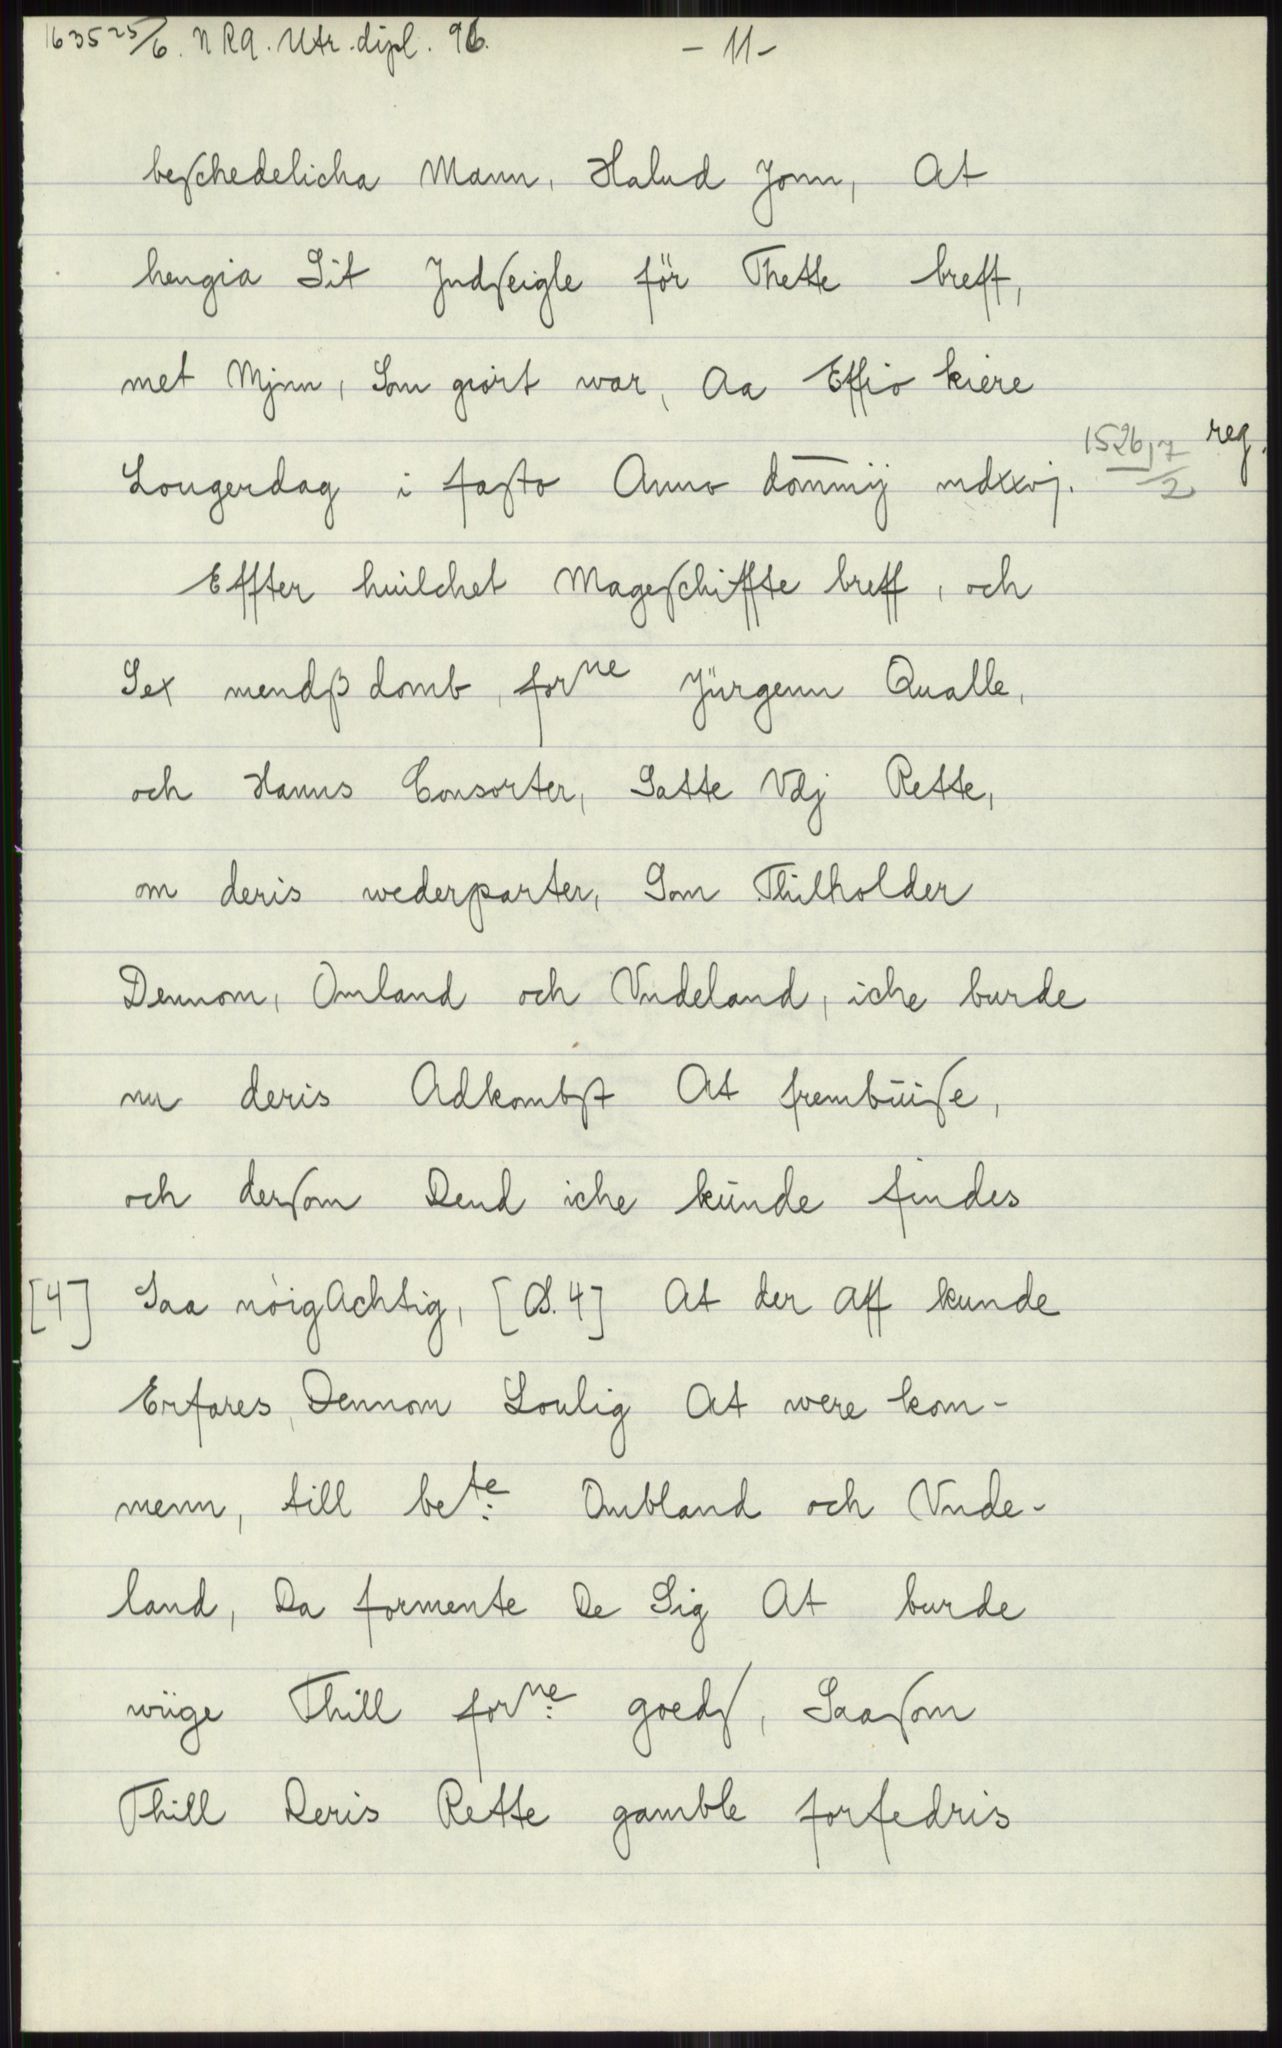 1635 25/6. NRA. Utr. dipl. 96. - 11 -
beſchedelicha Mann, Halud Jonn, At
hengia Sit Jndſeigle för Thette breff,
met Mjnn, Som giórt war, Aa Effio kiere
Lougerdag i faſto Anno dom̅mij mdxxvj. 1526 17/2 reg.
Effter huilchet Mageſchiffte breff, och
Sex mendß domb, forne Jürgenn Qualle,
och Hanns Consorter, Satte Vdj Rette,
om deris wederparter, Som Thilholder
Dennom, Omland och Vndeland, iche burde
nu deris Adkombſt At frembüiſe,
och derſom Dend iche künde findes
[4] Saa nóigAchtig, [S. 4] At der Aff kunde
Erfares, Dennom Loulig At were kom-
menn, till bete: Ombland och Vnde-
land, Da formente De Sig At burde
wiige Thill forne: goedſ, Saaſom
Thill Deris Rette gamble forfedris